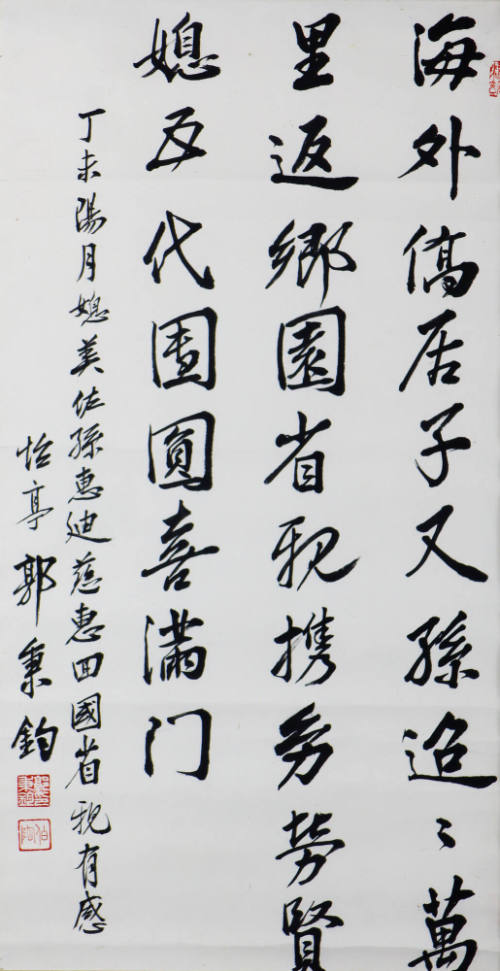 海外僑居子又孫迢〻萬
里返鄉園省親携幼勞賢
媳五代團圓喜滿门
丁未陽月媳美佐孫惠迪慈惠回國省親有感
怡亭郭秉鈞